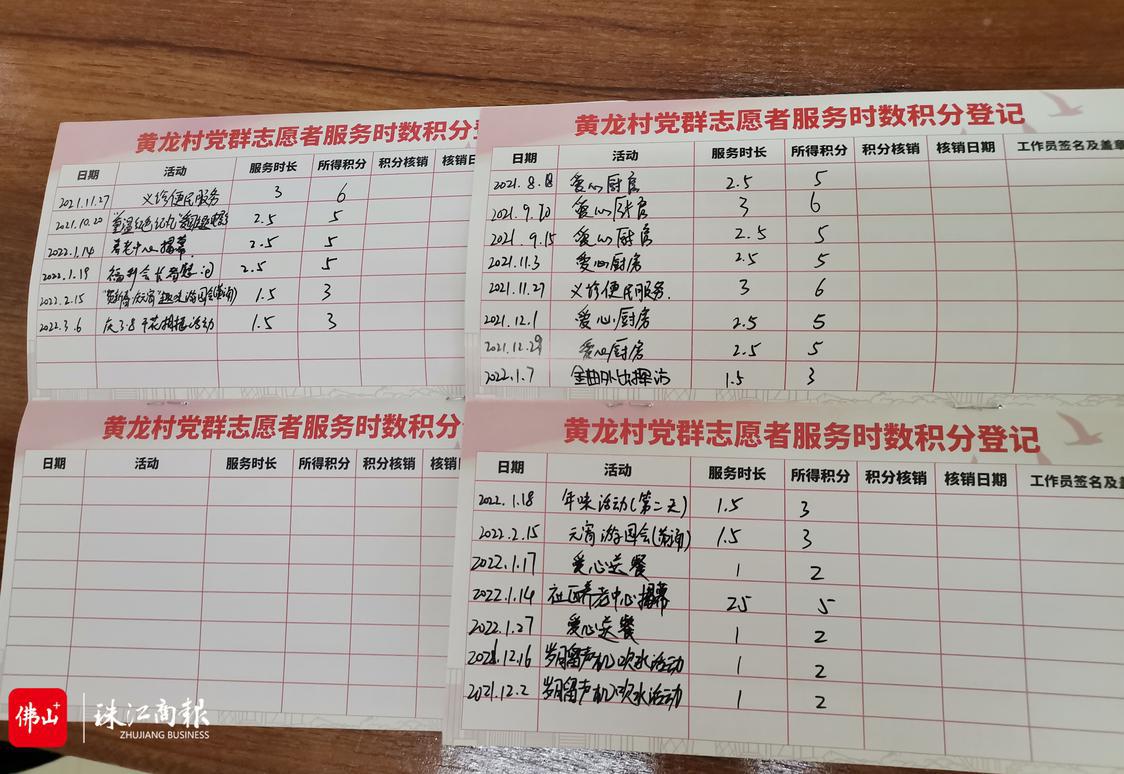 黄龙村党群志愿者服务时数积分登
日期 活动 服务时长 所得积分 积分核销 核销日
2021.11.27 义诊便民服务 3 6
2021.10.20 重温红色记忆 2.5 5
2022.1.14 养老中心揭幕 2.5 5
2022.1.19 福利会长者慰问 2.5 5
2022.2.15 游园会 1.5 3
2022.3.6 庆3.8干花相框活动 1.5 3
黄龙村党群志愿者服务时数积分登记
日期 活动 服务时长 所得积分 积分核销 核销日期 工作员签名及盖章
2021.8. 爱心厨房 2.5 5
2021.9.10 爱心厨房 3 6
2021.9.15 爱心厨房 2.5 5
2021.11.3 爱心厨房 2.5 5
2021.11.27 义诊便民服务. 3 6
2021.12.1 爱心厨房 2.5 5
2021.12.29 爱心厨房 2.5 5
2022.1.7 金曲外出探访 1.5 3
黄龙村党群志愿者服务时数积分
日期 活动 服务时长 所得积分 积分核销 核销
黄龙村党群志愿者服务时数积分登记
日期 活动 服务时长 所得积分 积分核销 核销日期 工作员签名及盖
2022.1.18 年味活动(第二天) 1.5 3
2022.2.15 元宵游园会 1.5 3
2022.1.17 爱心送餐 1 2
2022.1.14 社区养老中心揭幕 25 5
2022.1.27 爱心送餐 1 2
2021.12.16 岁月留声机吹水活动 1 2
2021.12.2 岁月留声机吹水活动 1 2
佛山+ 珠江商報
ZHUJIANG BUSINESS